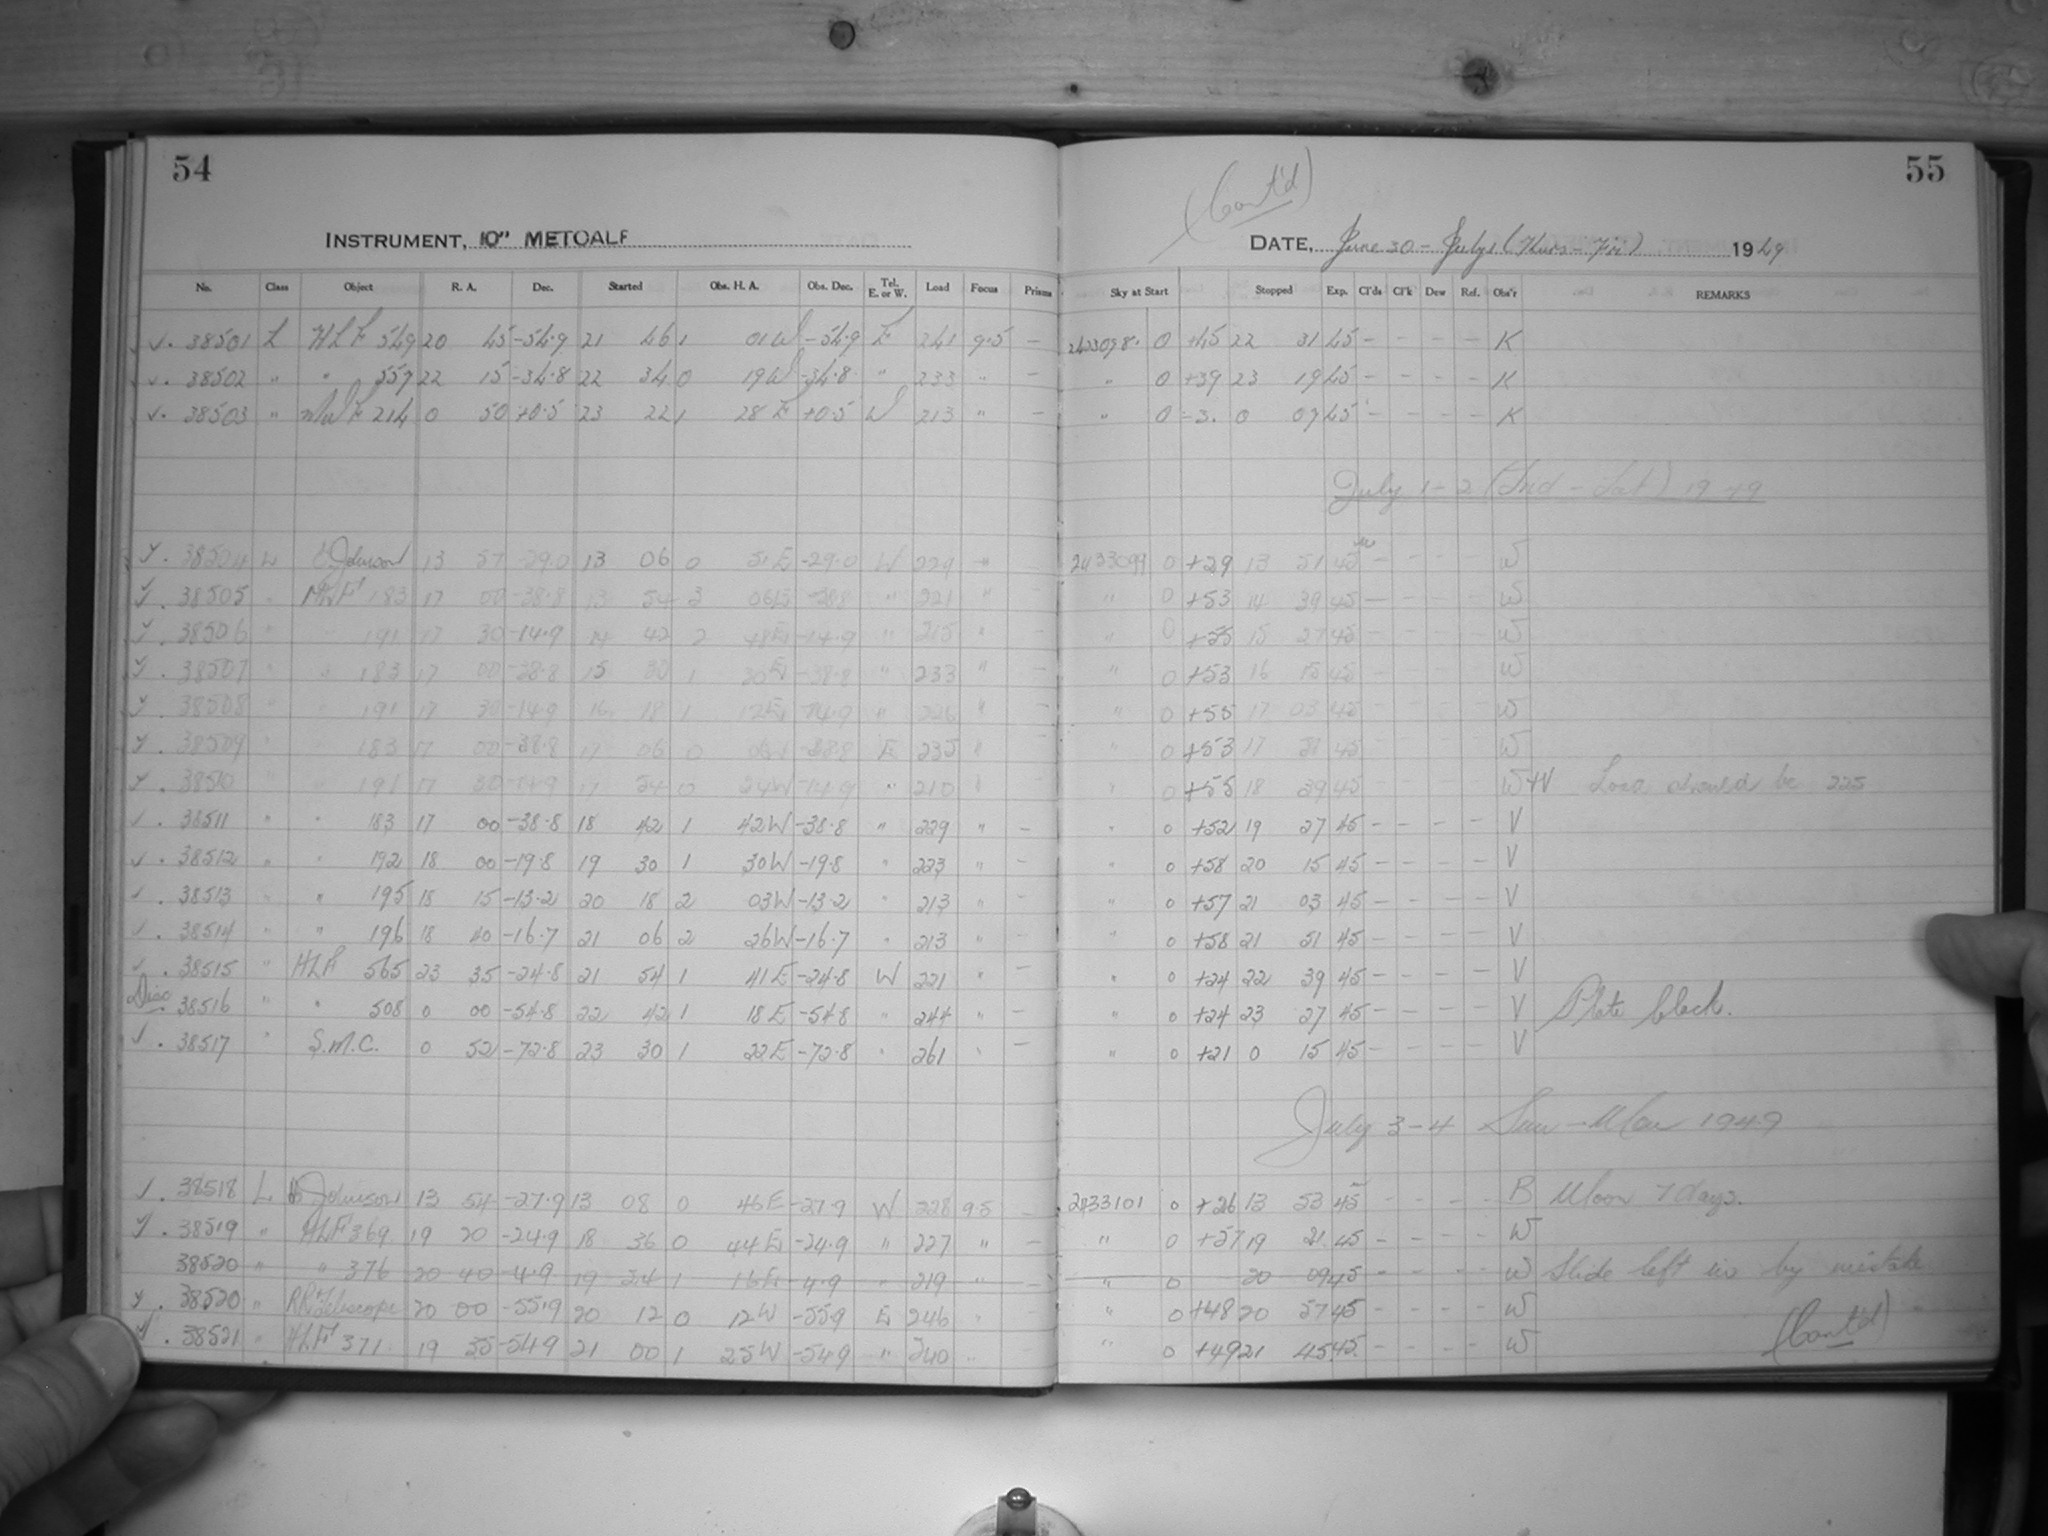 54
55
(Cont'd)
INSTRUMENT, 10" METCALF
DATE, June 30 - July 1 (Thurs - Fri) 1949
No. Class Object R. A. Dec. Started Obs. H. A. Obs. Dec. Tel. E. or W. Load Focus Prisms Sky at Start Stopped Exp. Cl'ds Cl'k Dew Ref. Obs'r REMARKS
√. 38501 L HLF 549 20 45 -54.9 21 46 1 01 W -54.9 E 241 9.5 - 2433098. 0 +45 22 31 45 - - - - K
√. 38502 " " 557 22 15 -34.8 22 34 0 19 W -34.8 " 233 " - " 0 +39 23 19 45 - - - - K
√. 38503 " MWF 214 0 50 +0.5 23 22 1 28 E +0.5 W 213 " - " 0 -3. 0 07 45 - - - - K
July 1-2 (Frid - Sat) 1949
√. 38504 L Johnson 13 57 -29.0 13 06 0 51 E -29.0 W 229 " - 2433099 0 +29 13 51 45 - - - - W
√. 38505 " MWF 183 17 00 -38.8 13 54 3 06 E -38.8 " 221 " - " 0 +53 14 39 45 - - - - W
√. 38506 " " 191 17 30 -14.9 14 42 2 48 E -14.9 " 215 " - " 0 +55 15 27 45 - - - - W
√. 38507 " " 183 17 00 -38.8 15 30 1 30 E -38.8 " 233 " - " 0 +53 16 15 45 - - - - W
√. 38508 " " 191 17 30 -14.9 16 18 1 12 E -14.9 " 226 " - " 0 +55 17 03 45 - - - - W
√. 38509 " " 183 17 00 -38.8 17 06 0 -38.8 E 235 " - " 0 +53 17 51 45 - - - - W
√. 38510 " " 191 17 30 -14.9 17 54 0 24 W -14.9 " 210 " - " 0 +55 18 39 45 - - - - W+V Load should be 225
√. 38511 " " 183 17 00 -38.8 18 42 1 42 W -38.8 " 229 " - " 0 +52 19 27 45 - - - - V
√. 38512 " " 192 18 00 -19.8 19 30 1 30 W -19.8 " 223 " - " 0 +58 20 15 45 - - - - V
√. 38513 " " 195 18 15 -13.2 20 18 2 03 W -13.2 " 213 " - " 0 +57 21 03 45 - - - - V
√. 38514 " " 196 18 40 -16.7 21 06 2 26 W -16.7 " 213 " - " 0 +58 21 51 45 - - - - V
√. 38515 " HLF 565 23 35 -24.8 21 54 1 41 E -24.8 W 221 " - " 0 +24 22 39 45 - - - - V
Disc. 38516 " " 508 0 00 -54.8 22 42 1 18 E -54.8 " 244 " - " 0 +24 23 27 45 - - - - V Plate black.
√. 38517 " S.M.C. 0 52 -72.8 23 30 1 22 E -72.8 " 261 " - " 0 +21 0 15 45 - - - - V
July 3-4 Sun - Mon 1949
√. 38518 L Johnson 13 54 -27.9 13 08 0 46 E -27.9 W 228 9.5 - 2433101 0 +26 13 53 45 - - - - B Moon 7 days.
√. 38519 " HLF 369 19 20 -24.9 18 36 0 44 E -24.9 " 227 " - " 0 +57 19 21 45 - - - - W
38520 " " 376 20 40 -4.9 19 24 1 16 E -4.9 " 219 " - " 0 20 09 45 - - - - W Slide left in by mistake
√. 38520 " RR Telescope 20 00 -55.9 20 12 0 12 W -55.9 E 246 " " 0 +48 20 57 45 - - - - W
√. 38521 " HLF 371 19 35 -54.9 21 00 1 25 W -54.9 " 240 " " 0 +49 21 45 45 - - - - W
(Cont'd)